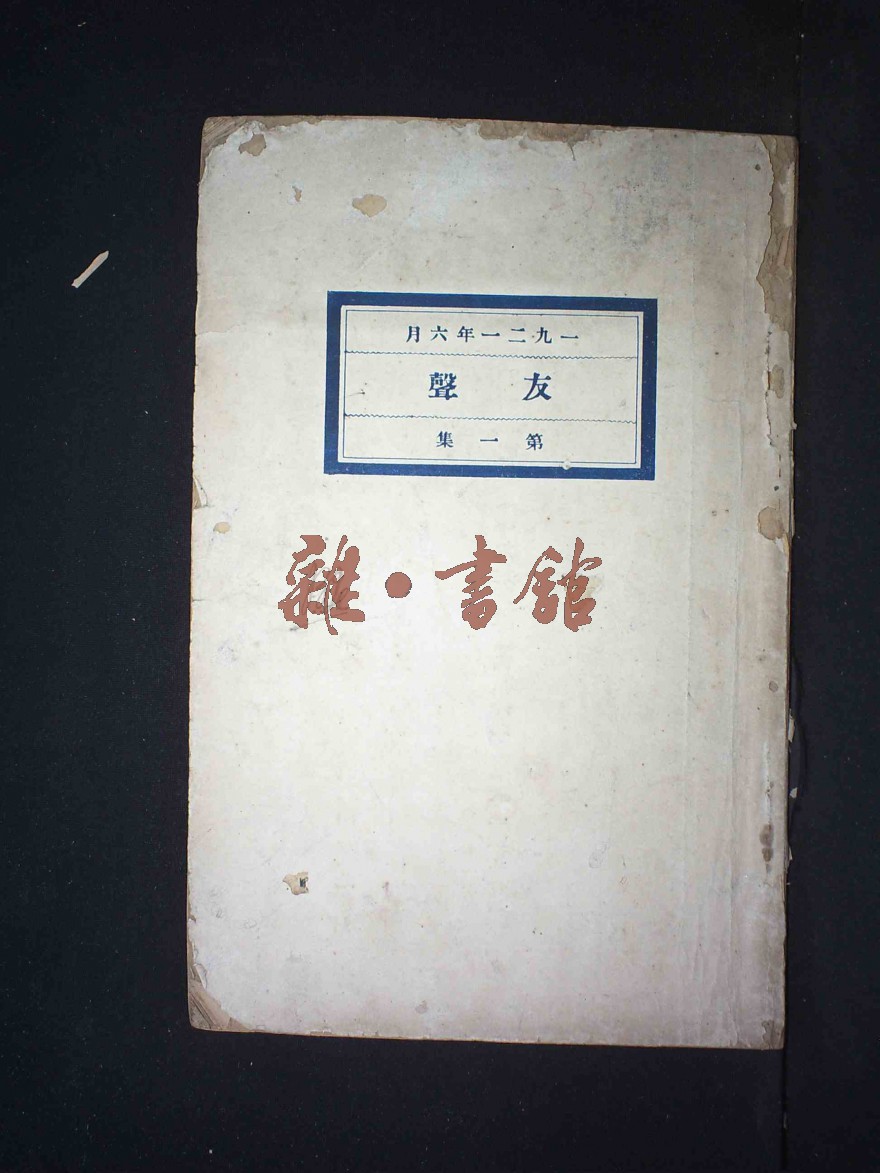 一九二一年六月
友聲
第一集
雜·書館